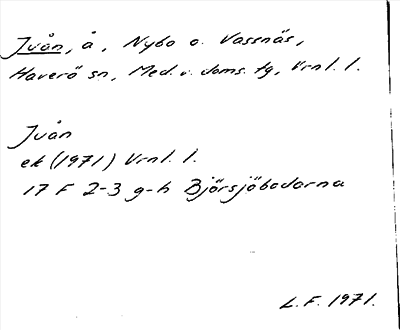 Juån, å, Nybo o. Vassnäs,
Haverö sn, Med. v. doms. tg, Vrnl. l.
Juån
ek (1971) Vrnl. l.
17 F 2-3 g-h Björsjöbodarna
L.F. 1971.